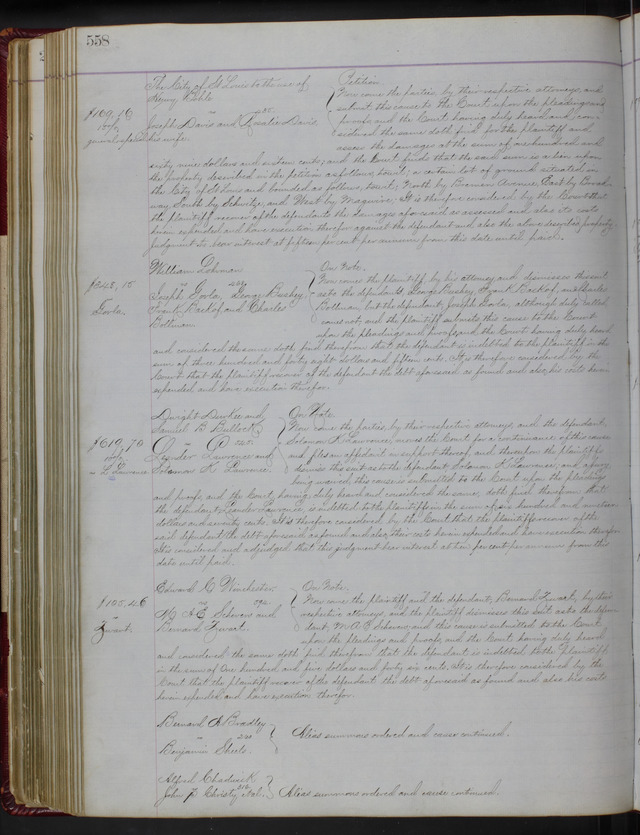 558
The City of St Louis to the use of
Henry Kahle
vs
Joseph Davis and Rosalie Davis
his wife.
$169,16
15%
general & special
Petition
Now come the parties, by their respective attorneys, and
submit this cause to the Court, upon the pleadings and
proofs, and the Court having duly heard and con-
sidered the same doth find for the plaintiff and
assess the damages at the sum of one hundred and
sixty nine dollars and sixteen cents; and the Court finds that the said sum is a lien upon
the property described in the petition as follows, towit; a certain lot of ground situated in
the City of St Louis and bounded as follows, towit; North by Avenue, East by Broad-
way, South by Schultze, and West by Maguire; It is therefore considered by the Court that
the plaintiff recover of the defendants the damages aforesaid so assessed and also its costs
herein expended and have execution therefor against the defendant and also the above described property,
judgment to bear interest at fifteen per cent per annum from this date until paid.
William Lohman
vs
Joseph Gorla, George Bushey,
Frank Backof, and Charles
Bollman
$348,15
Gorla.
On Note.
Now comes the plaintiff, by his attorney, and dismisses this suit
as to the defendants George Bushey, Frank Backof, and Charles
Bollman, but the defendant, Joseph Gorla, although duly called,
comes not; and the plaintiff submits this cause to the Court
upon the pleadings and proofs, and the Court having duly heard
and considered the same doth find therefrom that the defendant is indebted to the plaintiff in the
sum of three hundred and forty eight dollars and fifteen cents. It is therefore considered by the
Court that the plaintiff recover of the defendant the debt aforesaid as found and also his costs herein
expended and have execution therefor.
Dwight Durkee and
Samuel B. Bullock
vs
Leander Lawrence and
Solomon K. Lawrence.
$619,70
10%
L. Lawrence
On Note.
Now come the parties, by their respective attorneys, and the defendant,
Solomon K. Lawrence, moves the Court for a continuance of this cause
and files an affidavit in support thereof, and thereupon the plaintiffs
dismiss this suit as to the defendant Solomon K. Lawrence, and, a jury
being waived, this cause is submitted to the Court upon the pleadings
and proofs, and the Court, having duly heard and considered the same, doth find therefrom that
the defendant Leander Lawrence, is indebted to the plaintiffs in the sum of six hundred and nineteen
dollars and seventy cents. It is therefore considered by the Court that the plaintiffs recover of the
said defendant the debt aforesaid as found and also their costs herein expended and have execution therefor.
It is considered and adjudged that this judgment bear interest at ten per cent per annum from this
date until paid.
Edward C. Winchester
vs
M. A. E. Schevers and
Bernard Zwart.
$105,46
Zwart.
On Note.
Now come the plaintiff and the defendant, Bernard Zwart, by their
respective attorneys, and the plaintiff dismisses this suit as to the defen-
dant, M. A. E. and this cause is submitted to the Court
upon the pleadings and proofs, and the Court having duly heard
and considered the same doth find therefrom that the defendant is indebted to the Plaintiff
in the sum of One hundred and five dollars and forty six cents. It is therefore considered by the
Court that the plaintiff recover of the defendant the debt aforesaid as found and also his costs
herein expended and have execution therefor.
Bernard A Bradley
vs
Benjamin Sheets.
Alias summons ordered and cause continued.
Alfred Chadwick
vs
John P. Christy et al.
Alias summons ordered and cause continued.